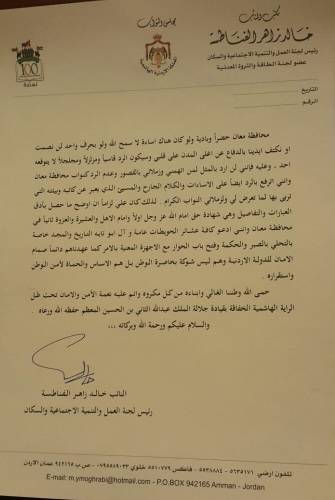 مكتب النائب
خالد زاهر الفناطسة
رئيس لجنة العمل والتنمية الاجتماعية والسكان
عضو لجنة الطاقة والثروة المعدنية
مجلس النواب
100
التاريخ
الرقم
محافظة معان حضراً وبادية ولو كان هناك اساءة لا سمح الله ولو بحرف واحد لن نصمت
او نكتف ايدينا بالدفاع عن اغلى المدن على قلبي وسيكون الرد قاسياً ومزلزلاً ومجلجلاً لا يتوقعه
احد . وعليه فإنني لن ارد بالمثل لمن اتهمني وزملائي بالقصور وعدم الرد كنواب محافظة معان
وانني اترفع بالرد ايضاً على الاساءات والكلام الجارح والمسيئ الذي يعبر عن كاتبه وبيئته التي
تربى بها لما تعرض لي ولزملائي النواب الكرام . لذلك كان علي لزاماً ان اوضح ما حصل بأدق
العبارات والتفاصيل وهي شهادة حق امام الله عز وجل أولاً وامام الاهل والعشيرة والعزوة ثانياً في
محافظة معان وانني ادعو كافة عشائر الحويطات عامة و آل ابو تايه التاريخ والمجد خاصة
بالتحلي بالصبر والحكمة وفتح باب الحوار مع الاجهزة المعنية بالامر كما عهدناهم دائماً صمام
الامان للدولة الاردنية وهم ليس شوكة بخاصرة الوطن بل هم الاساس والحماة لأمن الوطن
واستقراره .
حمى الله وطننا الغالي وابناءه من كل مكروه وانم عليه نعمة الامن والامان تحت ظل
الراية الهاشمية الخفاقة بقيادة جلالة الملك عبدالله الثاني بن الحسين المعظم حفظه الله ورعاه .
والسلام عليكم ورحمة الله وبركاته ...
النائب خالد زاهر الفناطسة
رئيس لجنة العمل والتنمية الاجتماعية والسكان
تلفون ارضي ٥٦٣٥١٧١ - ٥٥٣٨٨٨٤ - فاكس ٥٥١٠٧٧٩ خلوي ٠٧٩٥٥٨٩٠٣٣ - ص.ب ٩٤٢١٦٥ عمان الاردن
E-mail: m.ymoghrabi@hotmail.com - P.O.BOX 942165 Amman - Jordan